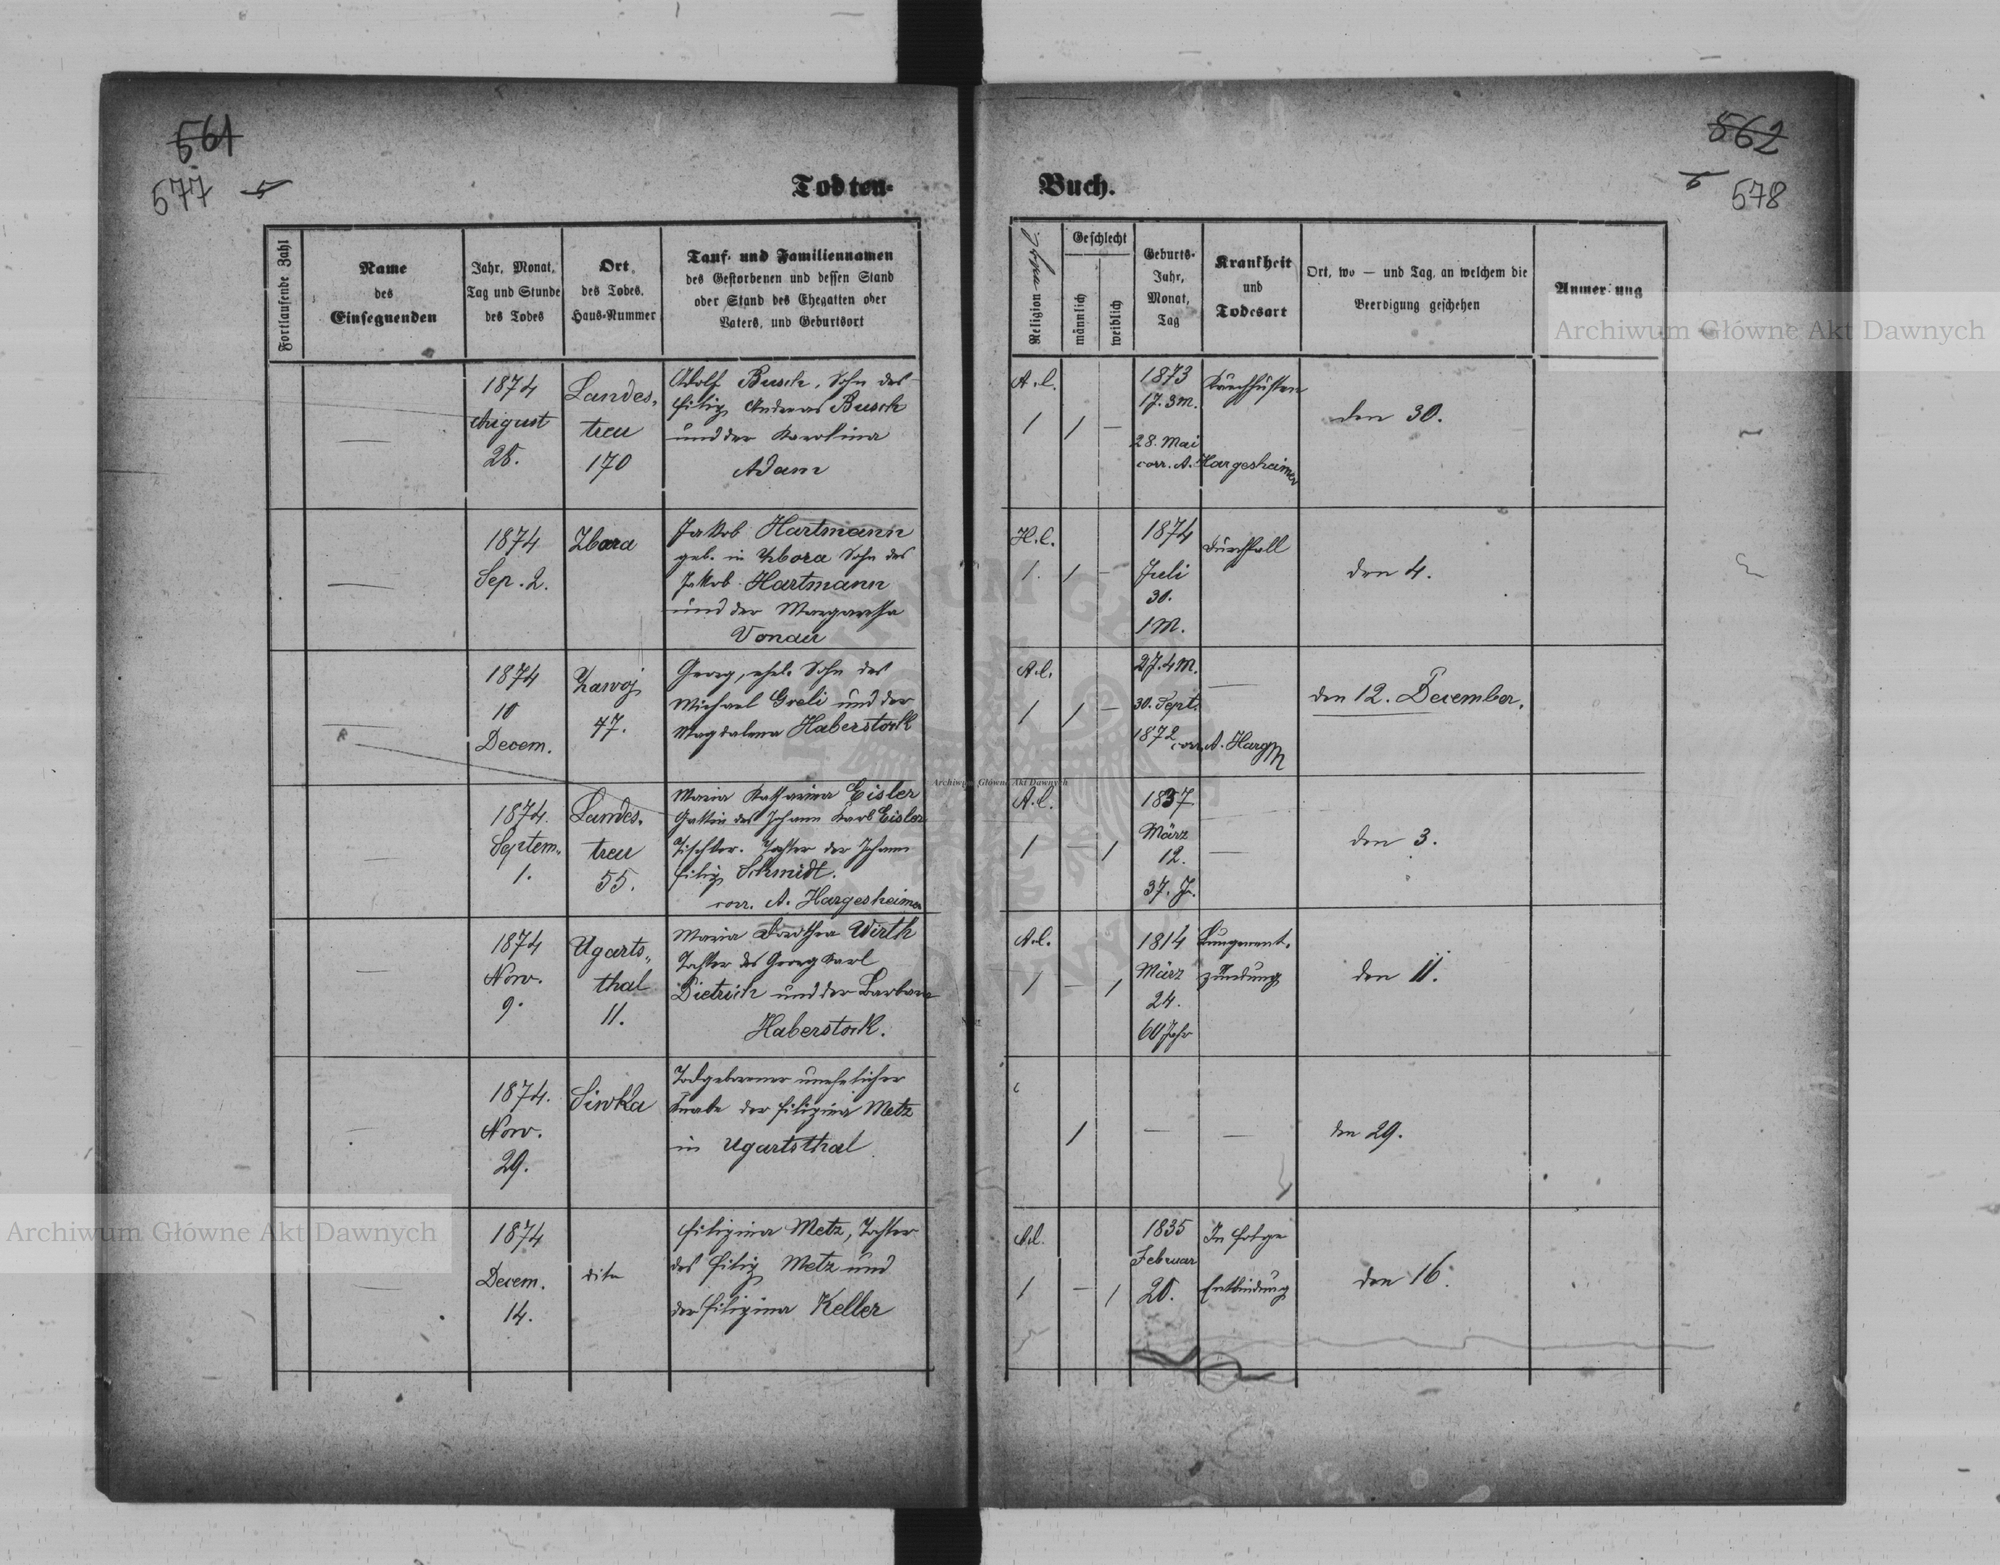 561
577
5
562
6
578
Todten-
Buch.
Fortlaufende Zahl
Name
des
Einsegnenden
Jahr, Monat,
Tag und Stunde
des Todes
Ort
des Todes.
Haus-Nummer
Tauf- und Familiennamen
des Gestorbenen und dessen Stand
oder Stand des Ehegatten oder
Vaters, und Geburtsort
Religion
Geschlecht
männlich
weiblich
Geburts-
Jahr,
Monat,
Tag
Krankheit
und
Todesart
Ort, wo — und Tag, an welchem die
Beerdigung geschehen
Anmer ung
1874
August
28.
Landes-
treu
170
Adolf Busch, Sohn des
Filip Andreas Busch
und der Karolina
Adam
A.C.
1
1
—
1873
1J. 3M.
28. Mai
corr. A. Hargesheimer
Keuchhusten
den 30.
—
1874
Sep. 2.
Zbora
Jakob Hartmann
geb. in Zbora Sohn des
Jakob Hartmann
und der Margaretha
Vonau
H.C.
1.
1
—
1874
Juli
30.
1M.
Durchfall
den 4.
—
1874
10
Decem.
Zawoj
47.
Georg, ehel. Sohn des
Michael Greli und der
Magdalena Haberstock
A.C.
1
1
—
2J. 4M.
30. Sept.
1872
corr. A. Hargm
—
den 12. December.
—
1874.
Septem.
1.
Landes-
treu
55.
Maria Katharina Eisler
Gattin des Johann Karl Eisler
Tischler. Tochter der Johann
Filip Schmidt.
corr. A. Hargesheimer
A.C.
1
—
1
1837
März
12.
37. J.
—
den 3.
—
1874
Nov.
9.
Ugarts-
thal
11.
Maria Dorothea Wirth
Tochter des Georg Karl
Dietrich und der Barbara
Haberstock.
A.C.
1
—
1
1814
März
24.
60 Jahr
Lungenent-
zündung
den 11.
—
1874.
Nov.
29.
Siwka
Todgeborener unehelicher
Knabe der Filipina Metz
in Ugartsthal
1
—
—
den 29.
—
1874
Decem.
14.
dito
Filipina Metz, Tochter
des Filip Metz und
der Filipina Keller
A.C.
1
—
1
1835
Februar
20.
In Folge
Entbindung
den 16.
Archiwum Główne Akt Dawnych
Archiwum Główne Akt Dawnych
Archiwum Główne Akt Dawnych